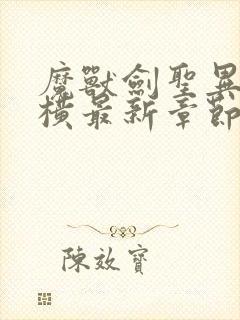 魔獸劍聖異
橫最新章節
陳效寶